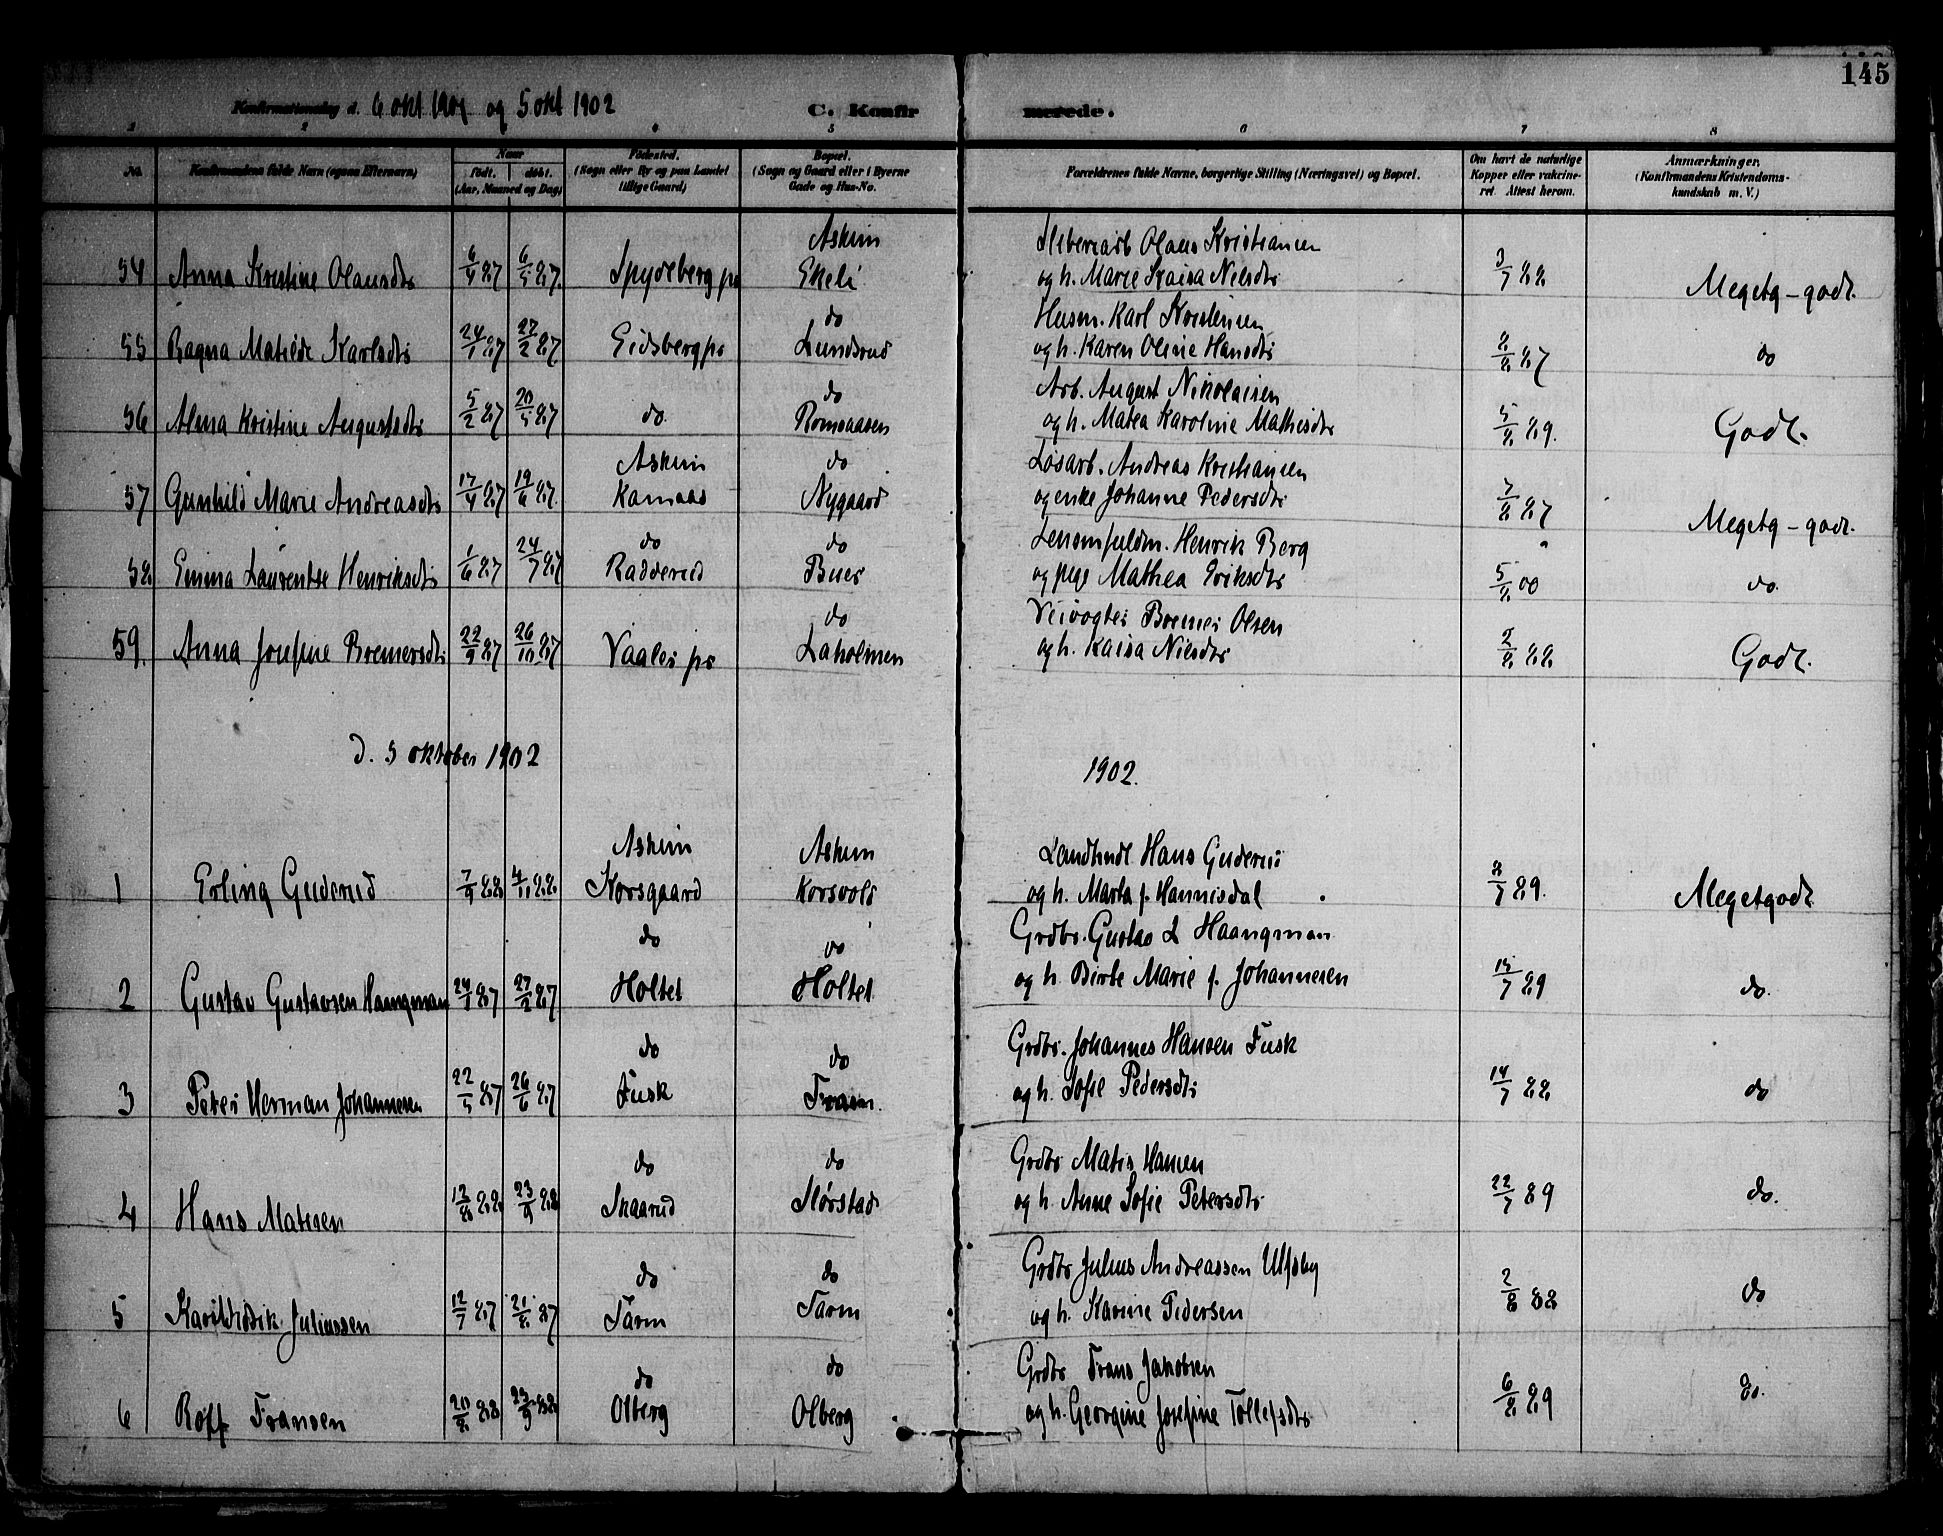 145
Konfirmationsdag d. 6 okt 1901 og 5 okt 1902 C. Konfirmerede.
1 2 3 4 5 6 7 8
No. Konfirmandens fulde Navn (ogsaa Efternavn) Naar Födt. döbt. (Aar, Maaned og Dag) Födested. (Sogn eller By og paa Landet tillige Gaard) Bopæl. (Sogn og Gaard eller i Byerne Gade og Hus-No. Forældrenes fulde Navne, borgerlige Stilling (Næringsvei) og Bopæl. Om havt de naturlige Kopper eller vakcineret. Attest herom. Anmærkninger. (Konfirmandens Kristendomskundskab m. V.)
Askim Olaus Kristiansen
54 Anna Kristine Olausdtr 6/4 87 6/5 87. Spydeberg ps Ekeli og h. Marie Kaisa Nilsdtr 3/7 88 Megetg - godt.
do Husm. Karl Kristensen
55 Ragna Matilde Karlsdtr 24/1 87 27/2 87 Eidsberg ps Lundsrud og h. Karen Oline Hansdtr 8/8 87 do
do Arb. August Nikolaisen
56 Alma Kristine Augustsdtr 5/2 87 20/5 87 do. Romsaasen og h. Matea Karoline Mathisdtr 5/8 89. Godt.
Askim do Løsarb. Andreas Kristiansen
57 Gunhild Marie Andreasdtr 17/4 87 19/6 87. Kamaas Nygaard og enke Johanne Pedersdtr 7/8 87 Megetg - godt.
do do Lensmfuldm. Henrik Berg
58 Emma Laurentse Henriksdtr 1/6 87 24/7 87 Radderud Buer og pige Mathea Eriksdtr 5/8 00 do.
do Veivogter Bremer Olsen
59. Anna Josefine Bremersdtr 22/9 87 26/10 87 Vaaler ps Laholmen og h. Kaisa Nilsdtr 2/8 88 Godt.
d. 5 oktober 1902 1902.
Askim Askim Landhndl. Hans Guderud
1 Erling Guderud 7/9 88 4/11 88. Korsgaard Korsvold og h. Marta f. Hannisdal 8/7 89. Megetgodt
do do Grdbr. Gustav L Haangman
2 Gustav Gustavsen Haangman 24/1 87 27/2 87 Holtet Holtet og h. Birte Marie f. Johannesen 15/7 89 do.
do do Grdbr. Johannes Hansen Fusk
3 Peter Herman Johannesen 22/5 87 26/6 87 Fusk Fraam. og h. Sofie Pedersdtr 14/7 88 do
do do Grdbr Matis Hansen
4 Hans Matisen 12/8 88 23/9 88 Skaarud Størstad og h. Anne Sofie Petersdtr 22/7 89 do.
do do Grdbr Julius Andreassen Ulfsby
5 Juliussen 12/7 87 21/8 87 Tarm Tarm og h. Karine Pedersen 2/8 88 do
do do Grdbr Frans Jakobsen
6 Rolf Fransen 20/8 88 23/9 88 Olberg Olberg og h. Georgine Josefine Tollefsdtr 6/8 89 do.